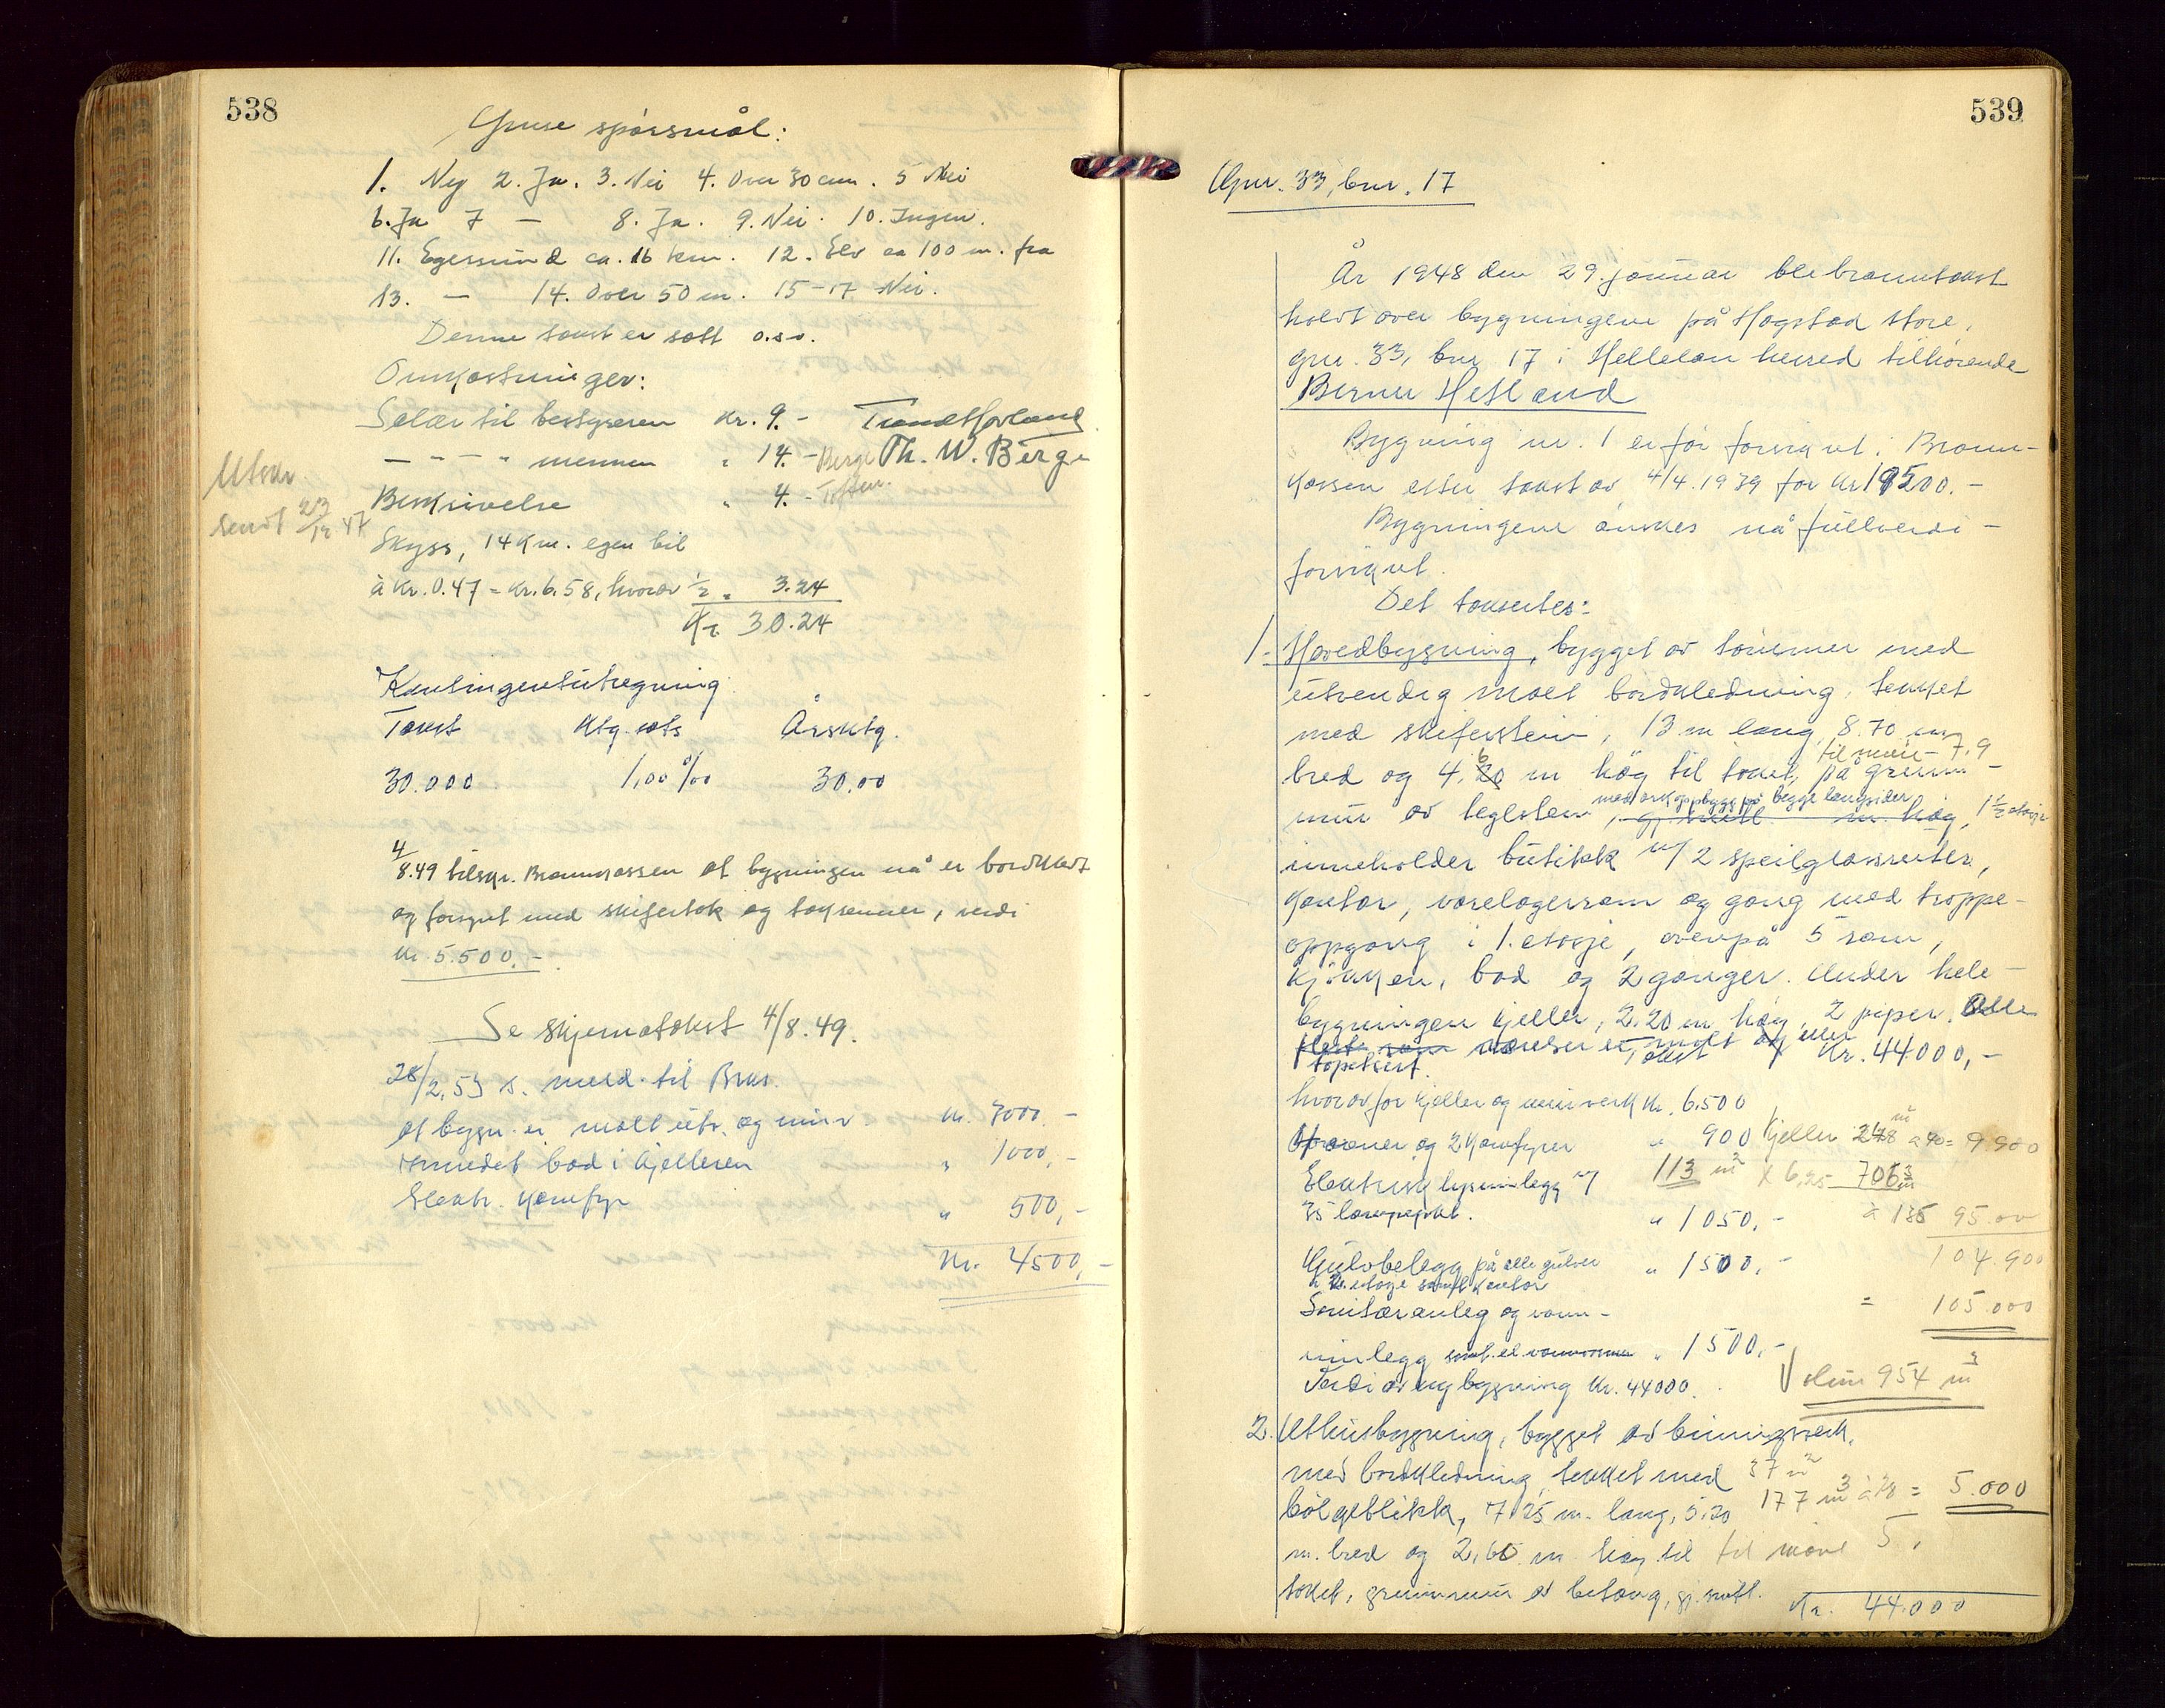 538
spørsmål:
1. Ny 2. Ja. 3. Nei 4. Over 30 cm. 5 Nei
6. Ja 7 — 8. Ja. 9. Nei. 10. Ingen.
11. Egersund ca. 16 km. 12. Elv ca 100 m. fra
13. — 14. Over 50 m. 15-17 Nei.
Denne takst er satt o.s.v.
Omkostninger:
Salær til bestyreren Kr. 9.-
— " — " mennene " 14.- Berge Th. W. Berge
Beskrivelse " 4.-
Utskr.
sendt 23/12 47
Skyss, 14 km. egen bil
à kr. 0.47 = kr. 6.58, hvorav ½ " 3.24
Kr. 30.24
Kontingentutregning
Takst Ktg. sats Årsktg.
30.000 1,00 ‰ 30,00
4/8.49 tilskr. Brannkassen at bygningen nå er bordkledt
og forsynt med skifertak og takrenner, verdi
kr. 5.500,-
Se skjematakst 4/8.49.
28/2.53 s. meld. til Brks.
at bygn. er malt utv. og innv. kr. 3000.-
innredet bad i kjelleren " 1000,-
Elektr. komfyr " 500,-
Kr. 4500,-
539
Gnr. 33, bnr. 17
År 1948 den 29. januar ble branntakst
holdt over bygningene på Hogstad store,
gnr. 33, bnr 17 i Helleland herred tilhørende
Berner Hetland
Bygning nr. 1 er før forsikret i Brann-
kassen etter takst av 4/4.1939 for kr 19500.-
Bygningene ønskes nå fullverdi-
forsikret.
Det takseres:
1. Hovedbygning, bygget av tømmer med
utvendig malt bordkledning, tekket
med skiferstein, 13 m lang, 8.70 m
til møne 7.9
bred og 4.60 m høg til taket, på grunn-
med arkoppbygg på begge langsider
mur av teglsten, gj. snitt m. høg, 1½ etasje
inneholder butikk m/ 2 speilglassruter,
kontor, varelagerrom og gang med trappe-
oppgang i 1. etasje, ovenpå 5 rom,
kjøkken, bad og 2 ganger. Under hele
bygningen kjeller, 2.20 m høg, 2 piper. Alle
værelser er malt og eller
tapetsert. Takst Kr. 44.000,-
hvorav for kjeller og murverk kr. 6.500
Ovner og 2 komfyrer " 900 Kjeller 248 m à 40 = 9.900
Elektrisk lysinnlegg m/ 113 m² x 6,25 706 m³
35 lampepkt. " 1050,- à 135 95.00
Gulvbelegg på alle gulver " 1500,- 104.900
i 2. etasje samt kontor
Sanitæranleg og vann- = 105.000
innlegg " 1500,-
Verdi av byg bygning Kr. 44000. Volum 954 m³
2. Uthusbygning, bygget av binningsverk,
med bordkledning, tekket med 37 m²
bølgeblikk, 7.25 m. lang, 5.20 177 m³ à 28 = 5.000
m. bred og 2,60 m høg til til møne 5,
taket, grunnmur av betong, gj. snitt.
Kr. 44.000